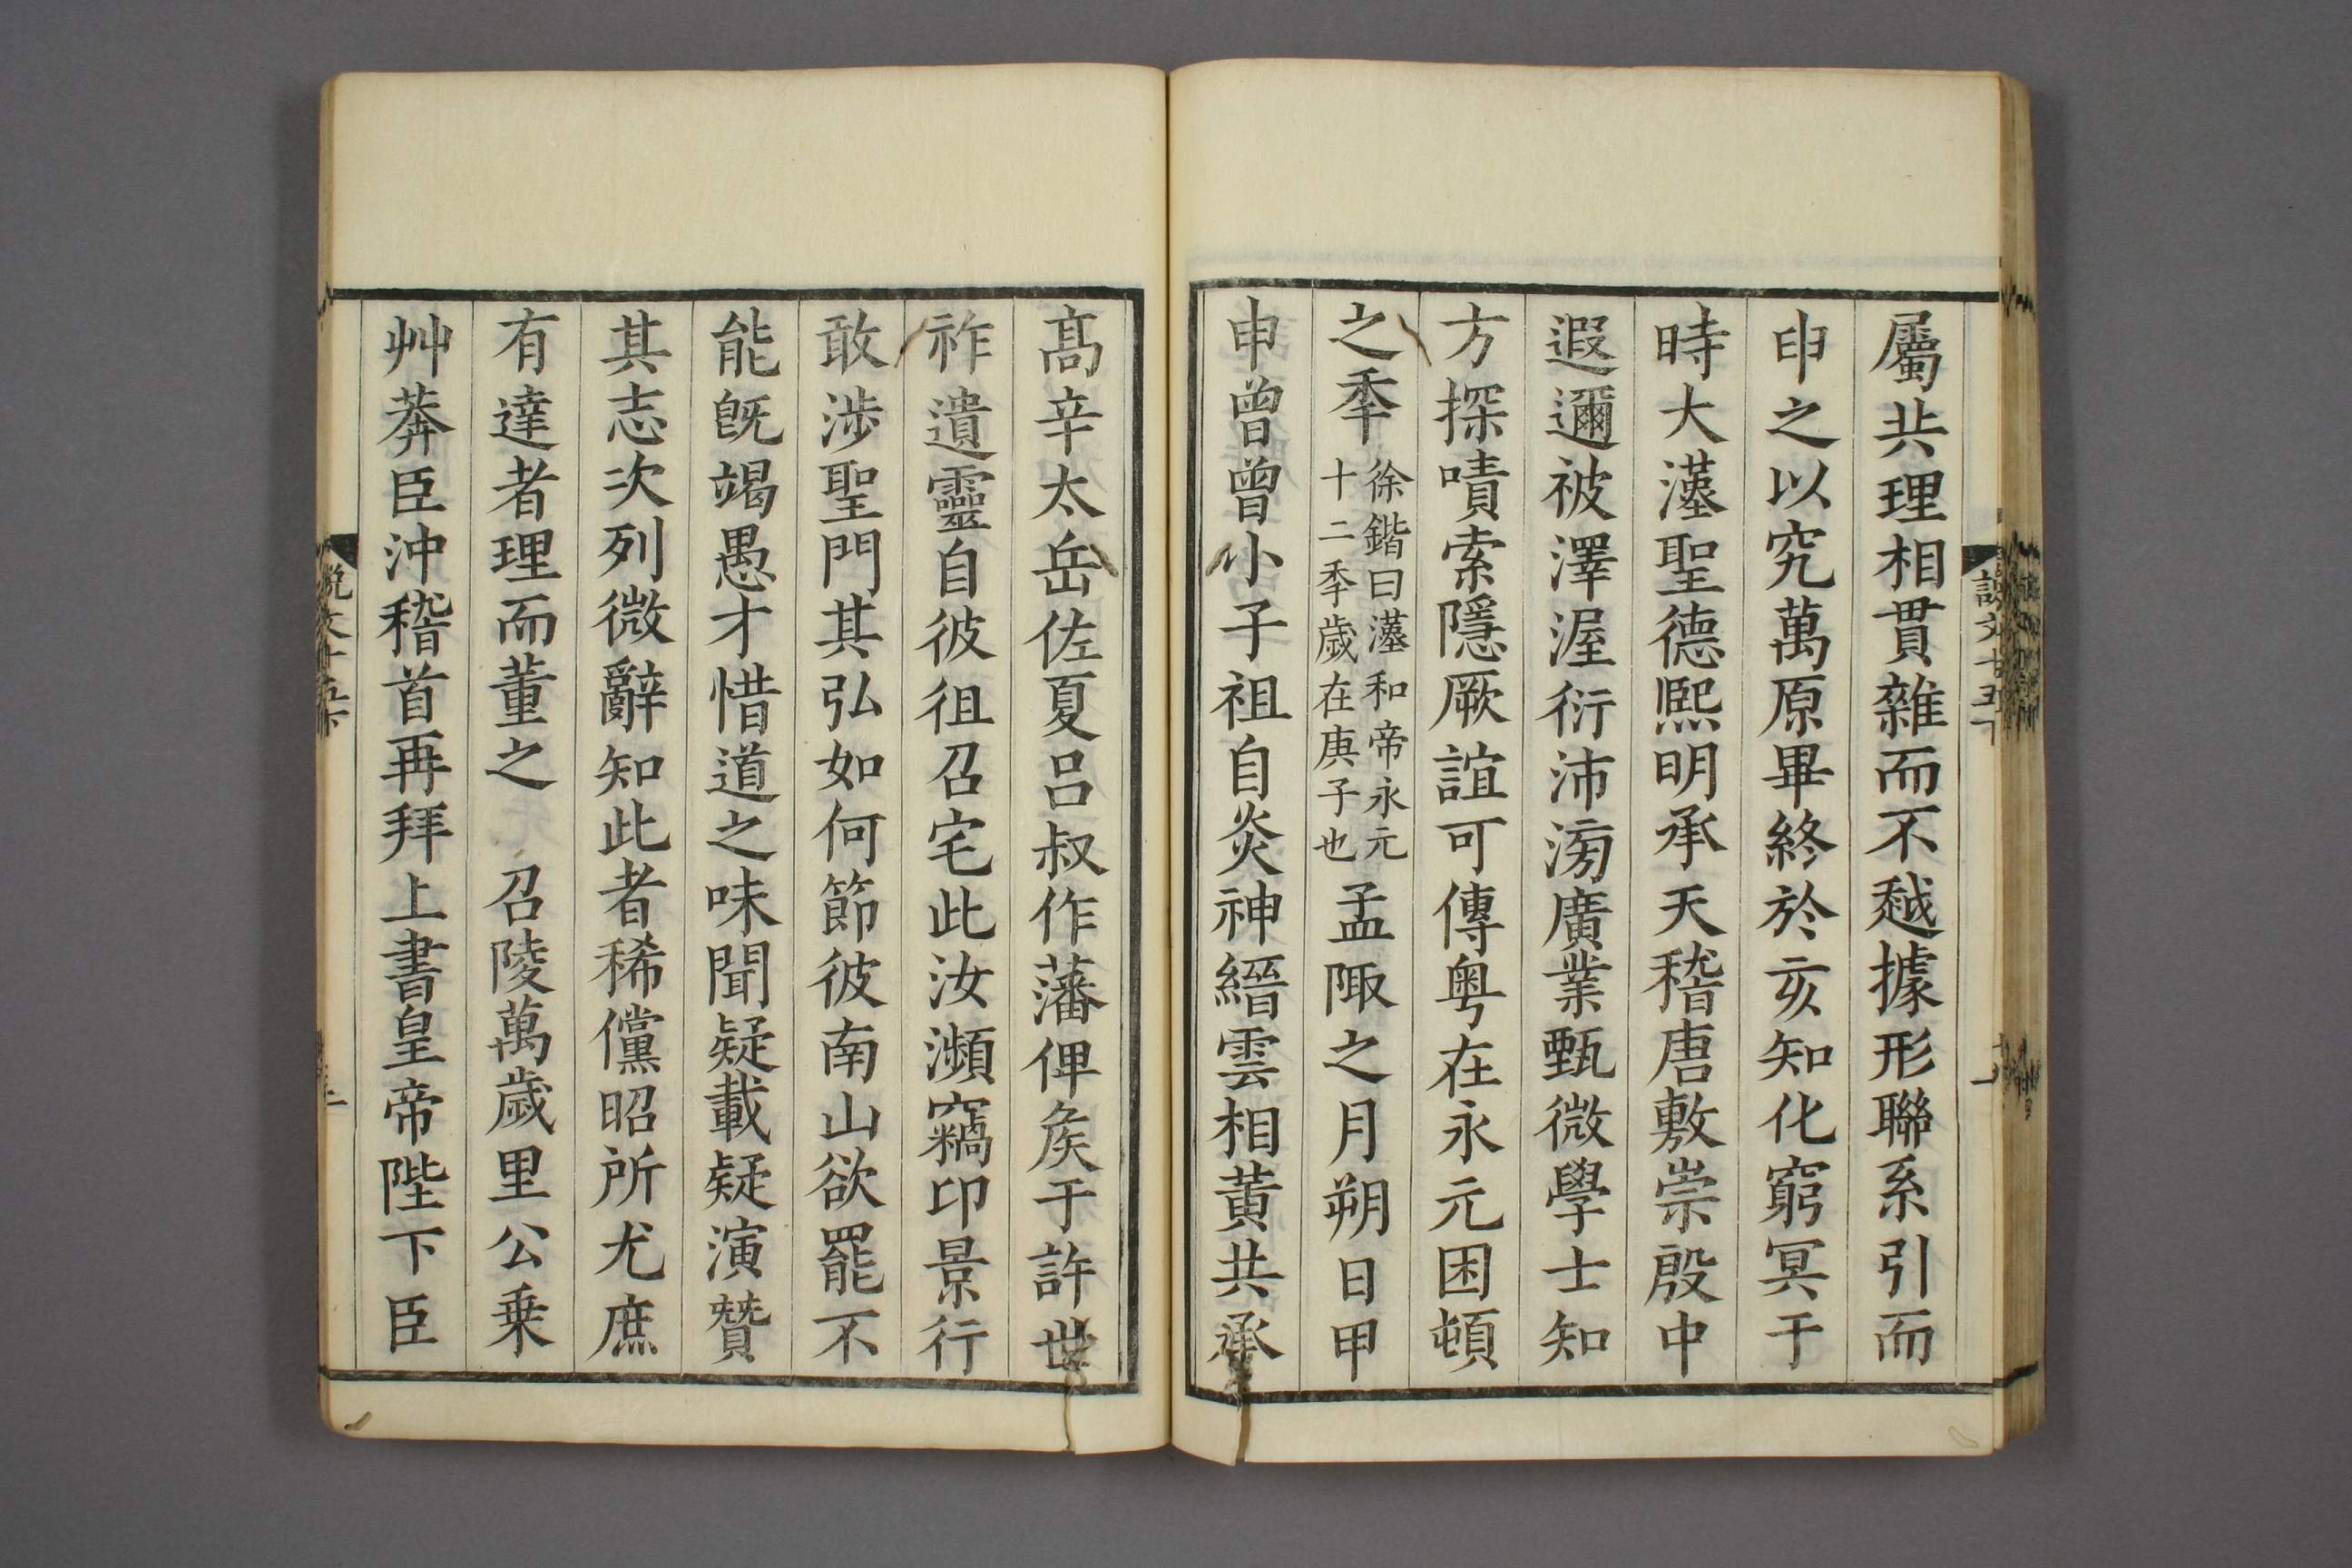 屬共理相貫雜而不越據形聯系引而
申之以究萬原畢終於亥知化窮冥于
時大漢聖德熙明承天稽唐敷崇殷中
遐邇被澤渥衍沛滂廣業甄微學士知
方探嘖索隱厥誼可傳粤在永元困頓
之秊徐鍇曰漢和帝永元十二秊歲在庚子也孟陬之月朔日甲
申曾曾小子祖自炎神縉雲相黃共承
高辛太岳佐夏呂叔作藩俾矦于許世
祚遺靈自彼徂召宅此汝瀕竊卬景行
敢涉聖門其弘如何節彼南山欲罷不
能既竭愚才惜道之味聞疑載疑演贊
其志次列微辭知此者稀儻昭所尤庶
有達者理而董之　召陵萬歲里公乗
艸莽臣沖稽首再拜上書皇帝陛下臣
說文十五下
一
說文十五下
二